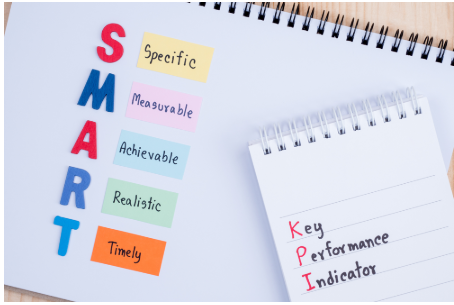 S Specific
M Measurable
A Achievable
R Realistic
T Timely
Key
Performance
Indicator